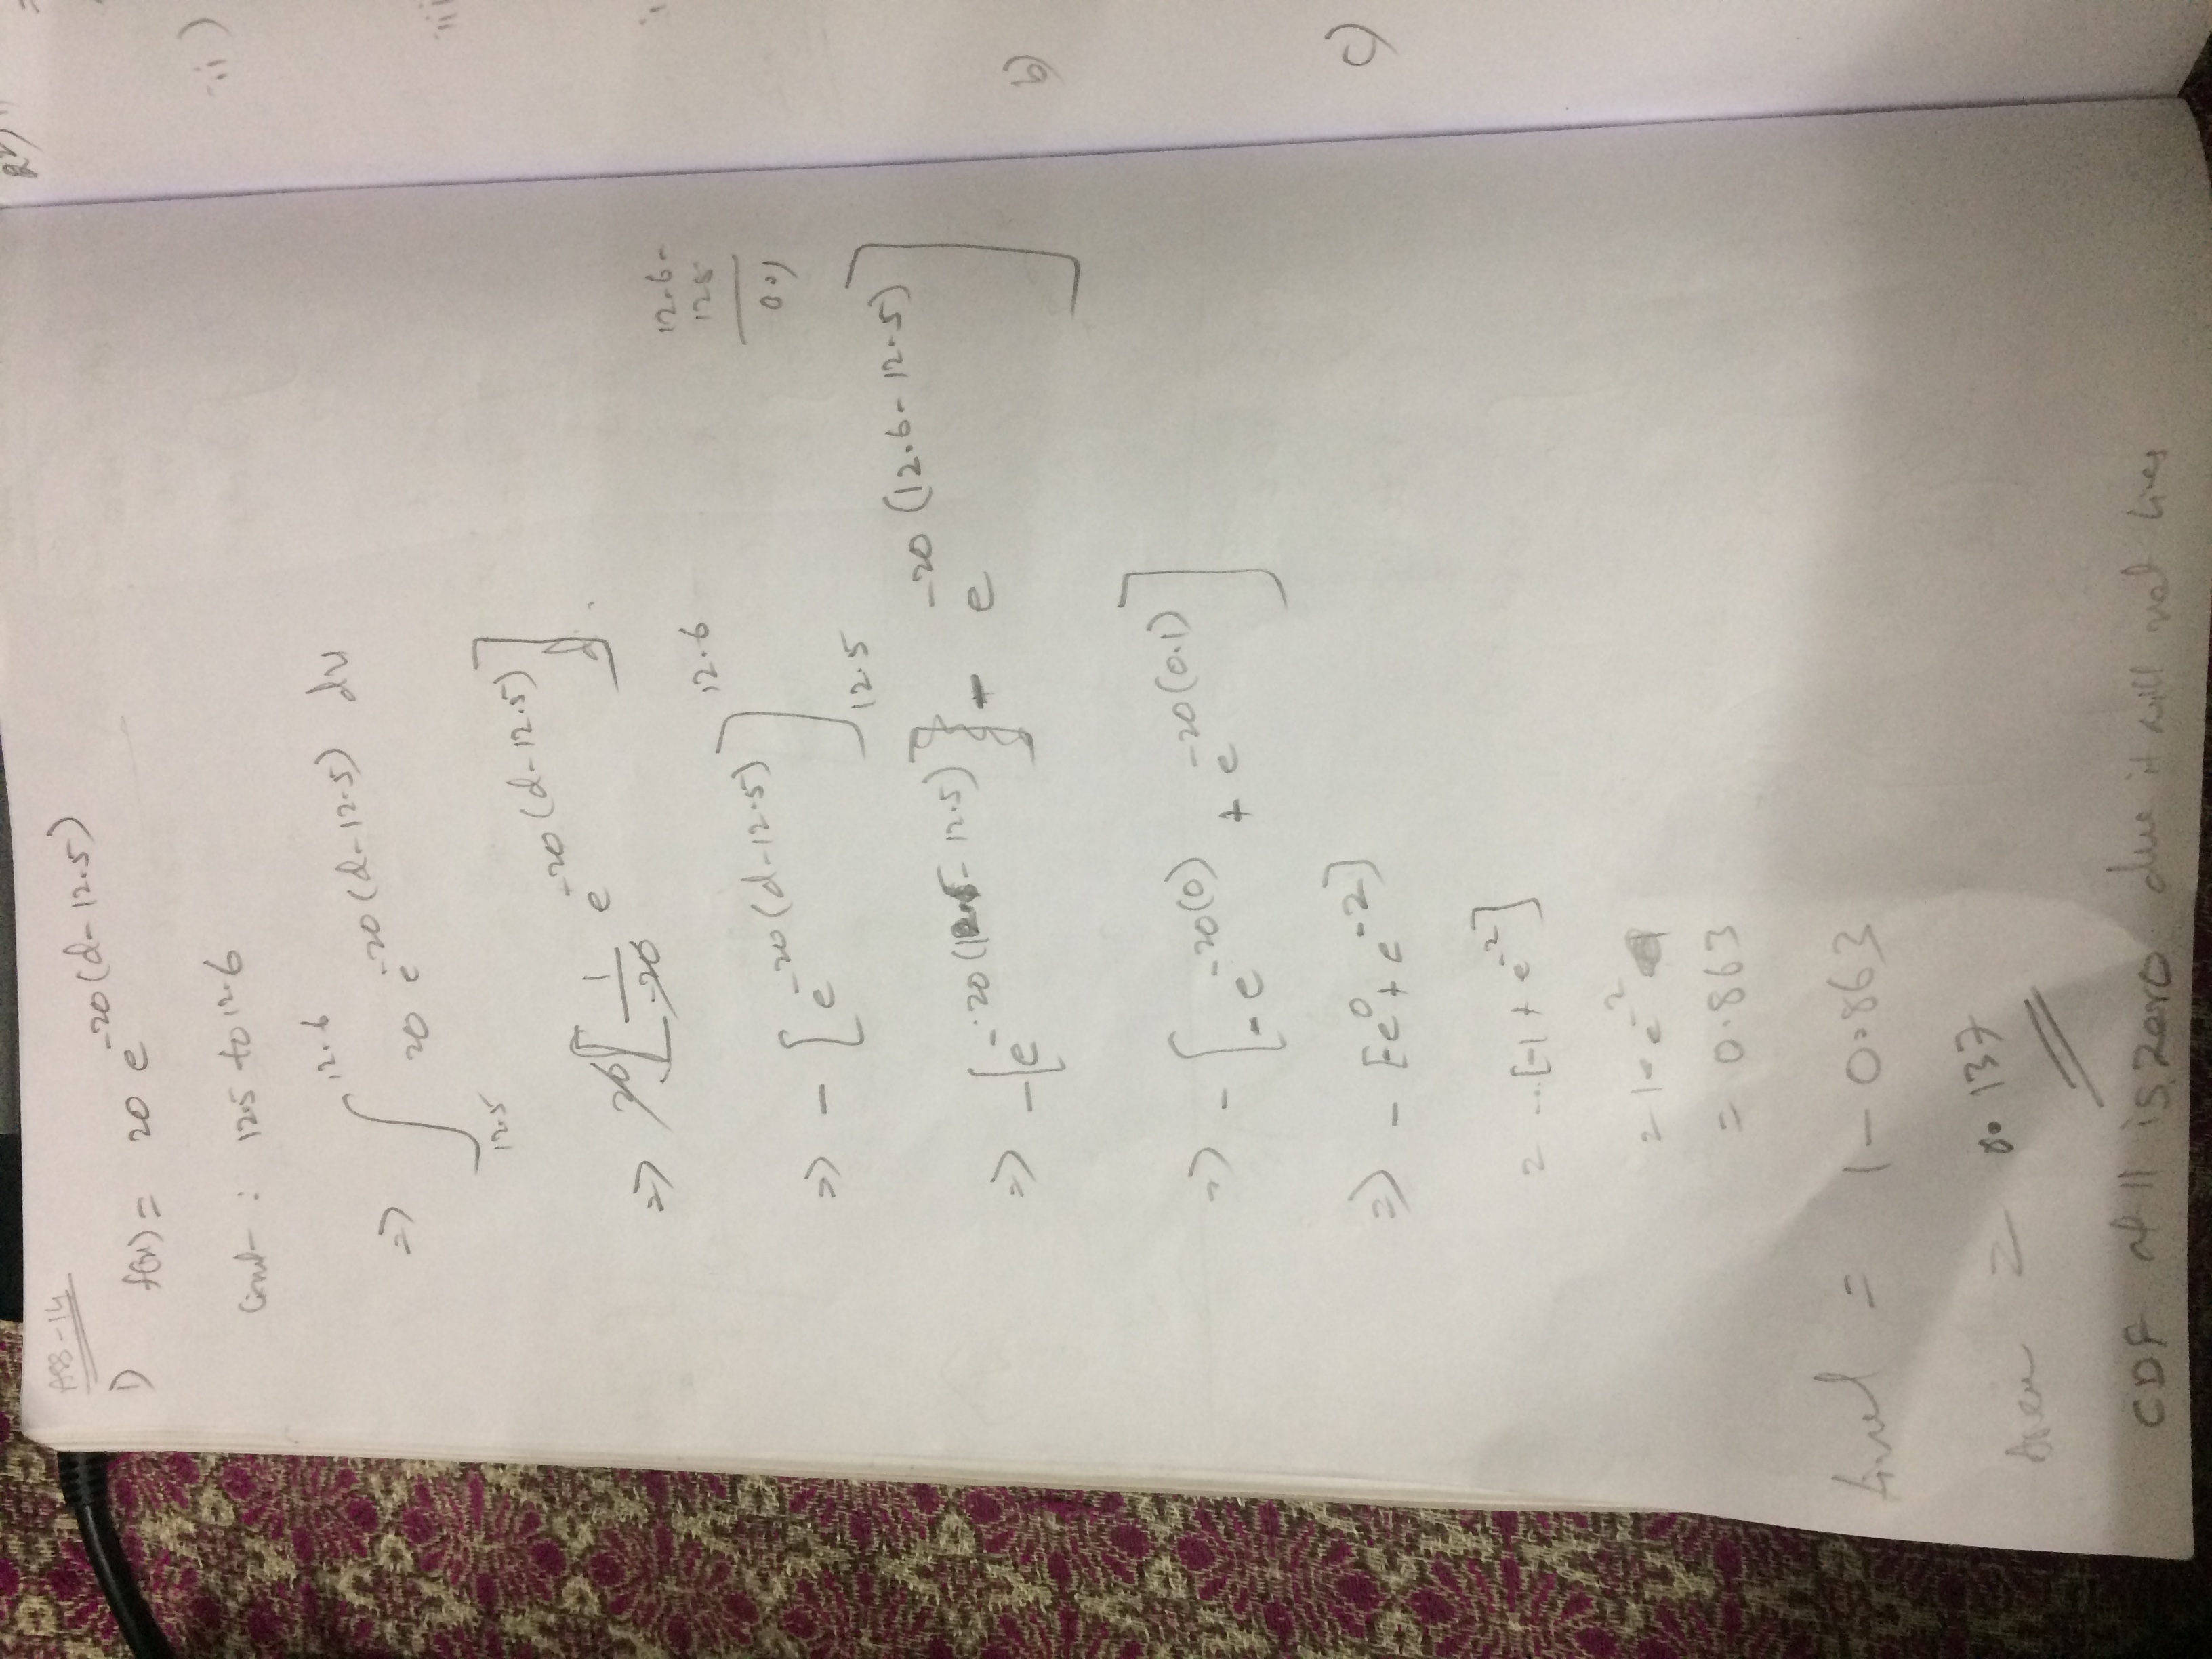 Ass-14
1) f(x) = 20 e^-20(d-12.5)
Limit : 12.5 to 12.6
=> ∫ 12.6 12.5 20 e^-20(d-12.5) dx
=> 20 [ 1/-20 e^-20(d-12.5) ]
=> - [ e^-20(d-12.5) ] 12.6 12.5
12.6 -
12.5
0.1
=> - [ e^-20(12.5-12.5) - e^-20(12.6-12.5) ]
=> - [ - e^-20(0) + e^-20(0.1) ]
=> - [-e^0 + e^-2]
= - [-1 + e^-2]
= 1 - e^-2
= 0.863
= 1 - 0.863
Area = 0.137
CDF of 11 is zero due it will not lies
2)
ii)
iii
b)
c)